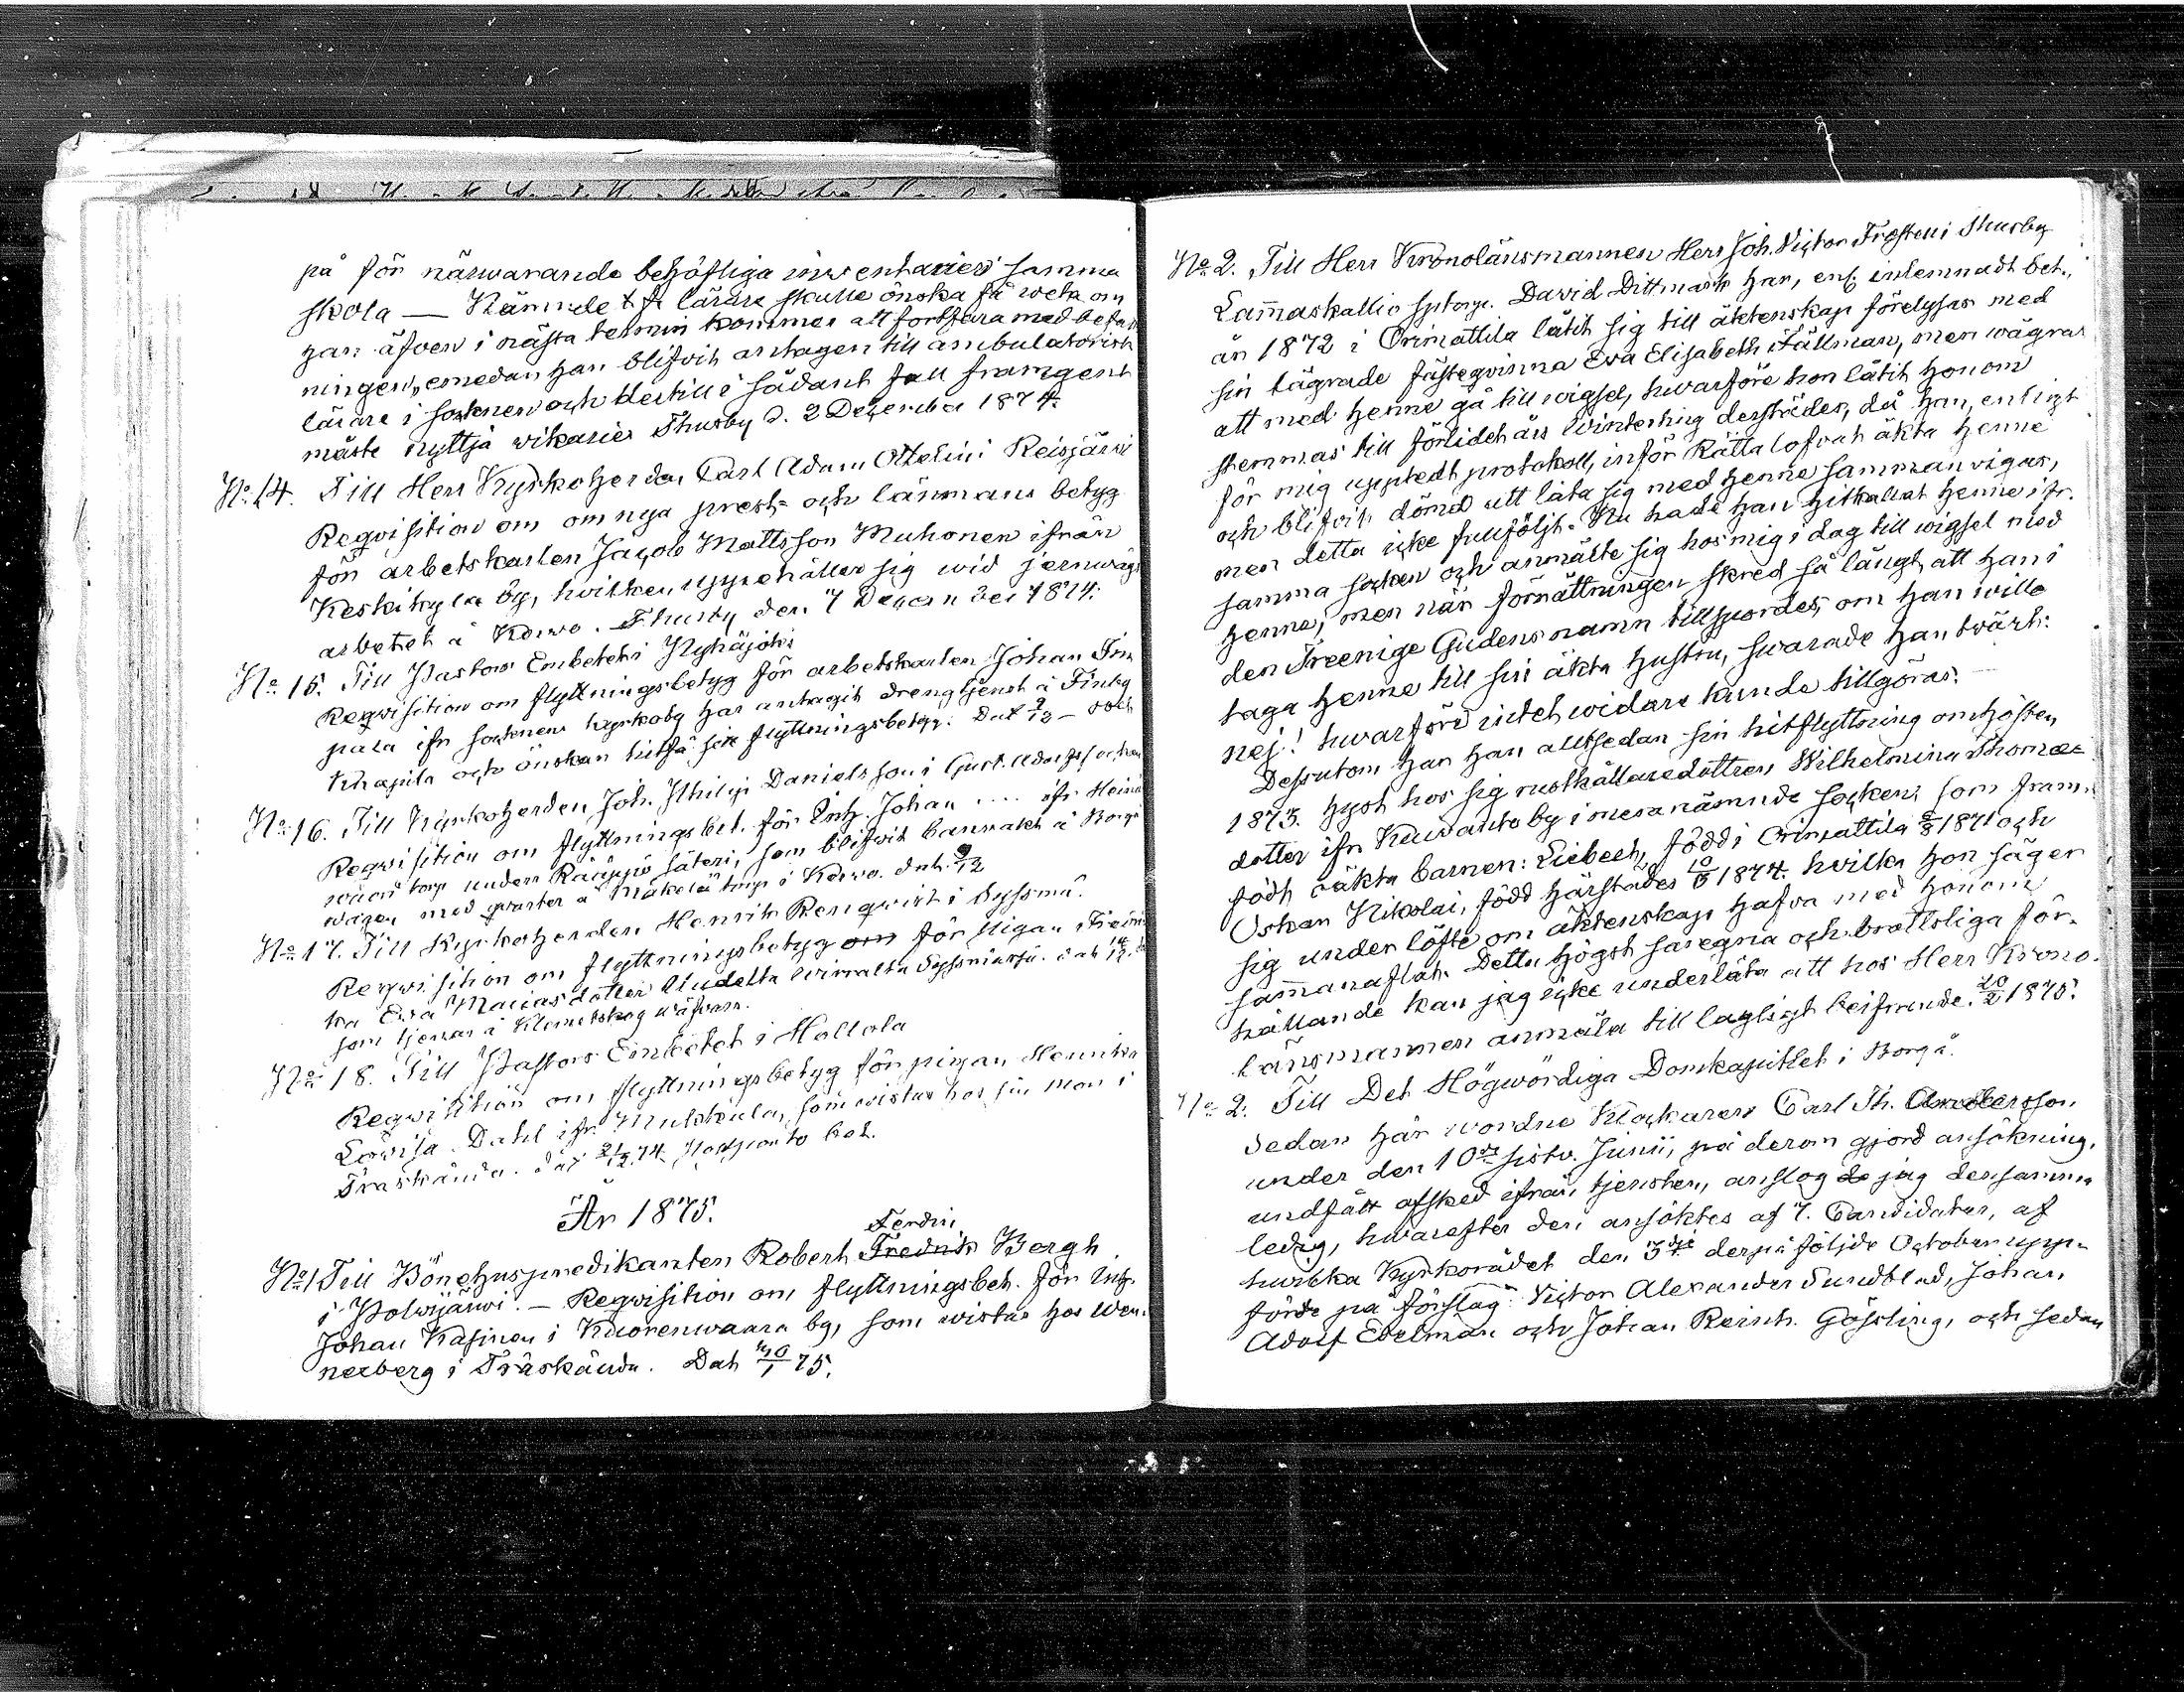 på för närwarande behöfliga inventarier i samma
skola — Nämnde t. f. lärare skulle önska få weta om
han äfven i nästa termin kommer att fortfara med befatt-
ningen, emedan han blifvit antagen till ambulatorisk
lärare i socknen och dertill i sådant fall framgent
måste nyttja wikarier Thusby d. 2 December 1874.
No 14. Till Herr Kyrkoherden Carl Adam Ottelin i Reisjärwi
Reqvisition om om nya prest- och länmans betyg
för arbetskarlen Jacob Mattsson Muhonen ifrån
Keskikylä by, hvilken uppehåller sig wid jernwägs
arbetet å Korwo. Thusby den 7 December 1874.
No 15. Till Pastors Embetet i Pyhäjoki
Reqvisition om flyttningsbetyg för arbetskarlen Johan
para ifr. socknens kyrkoby har antagit drengtjenst å Finby
Knapila och önskan hitfå sin flyttningsbetyg. Dat 7/12
No 16. Till Kyrkoherden Joh. Philip Danielsson i Gust. Adolfs socken
Reqvisition om flyttningsbet. för Inh. Johan .... ifr.
torp under Rääppö säteri, som blifvit banvakt å Borgå
wägen med qvarter å Mäkelä torp i Korwo. dat. 9/12
No 17. Till Kyrkoherden Henrik Renqvist i Sysmä.
Reqvisition om flyttningsbetyg om för pigan
ka Eva Maria's dotter Uudelta Wirralta Sysmästä. dat
som tjenar å Klemetskog
No 18. Till Pastors Embetet i Hollola
Reqvisition om flyttningsbetyg för pigan Henrika
Lowisa Dahl ifr. som wistas hos sin man i
Träskända. dat 21/12 74.
År 1875.
Ferdin
No 1 Till Bönehuspredikanten Robert Fredrik Bergh
i Polwijärwi. — Reqvisition om flyttningsbet. för Inh.
Johan Kasinen i Kuorenwaara by, som wistas hos Wen-
nerberg i Träskända. Dat 75.
No 2. Till Herr Kronolänsmannen Herr Joh. Victor Frosten i Thusby
Lam̄askallio David Dittmark har, enl. inlemnadt bet.,
år 1872 i Orimattila låtit sig till äktenskap förelysas med
sin lägrade fästeqvinna Eva Elisabeth Fällman, men wägrar
att med henne gå till wigsel, hwarföre hon låtit honom
stemmas till förlidet års Winterting derstädes, då han, enligt
för mig upptedt protokoll, inför Rätta lofvat äkta henne
och blifvit dömd att låta sig med henne sammanvigas,
men detta icke fullföljt. Nu hade han hitkallat henne ifr.
samma socken och anmälte sig hos mig i dag till wigsel med
henne, men när förrättningen skred så långt, att han i
den Treenige Gudens namn tillspordes, om han wille
taga henne till sin äkta hustru, swarade han twärt:
nej! hwarföre intet widare kunde tillgöras. —
Dessutom har han alltsedan sin hitflyttning om hösten
1873. hyst hos sig rusthållaredottren Wilhelmina Thomæ
dotter ifr. Kuiwanto by i mera nämnde socken, som fram-
födt oäkta barnen: Liebech, född i Orimattila 1871 och
Oskar Nikolai, född härstädes 1874. hvilka hon säger
sig under löfte om äktenskap hafva med honom
sam̄anaflat. Detta högst saregna och brottsliga för-
hållande kan jag icke underlåta att hos Herr Krono-
länsmannen anmäla till lagligt beifrande. 20/2 1875.
No 2. Till Det Högwördiga Domkapitlet i Borgå.
Sedan här wordne Klockaren Carl Th.
under den 10de sistv. Junii, på derom gjord ansökning,
undfått afsked ifrån tjensten, anslog de jag densamma
ledig, hwarefter den ansöktes af 7. Candidater, af
hwilka Kyrkorådet den 3dje derpå följde October upp-
förde på förslag: Victor Alexander Sundblad, Johan
Adolf Edelman och Johan Reinh. Gössling, och sedan